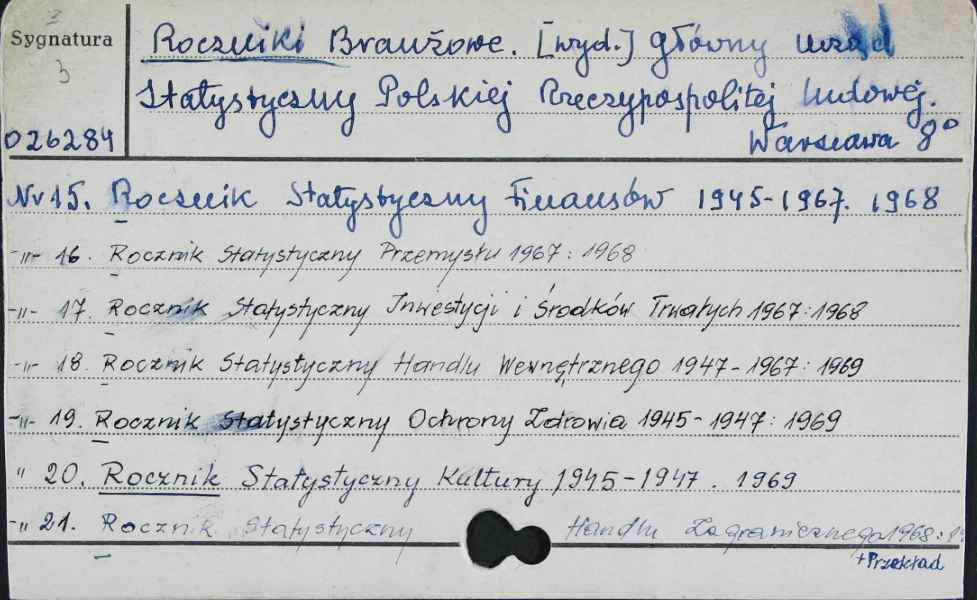 Sygnatura
3
026284
Roczniki Branżowe. [wyd.] Główny Urząd
Statystyczny Polskiej Rzeczypospolitej Ludowej.
Warszawa 8°
Nr 15. Rocznik Statystyczny Finansów 1945-1967. 1968
-"- 16. Rocznik Statystyczny Przemysłu 1967: 1968
-"- 17. Rocznik Statystyczny Inwestycji i Środków Trwałych 1967: 1968
-"- 18. Rocznik Statystyczny Handlu Wewnętrznego 1947-1967: 1969
-"- 19. Rocznik Statystyczny Ochrony Zdrowia 1945-1947: 1969
" 20. Rocznik Statystyczny Kultury 1945-1947. 1969
-"- 21. Rocznik Statystyczny Handlu Zagranicznego 1968:
+Przekład